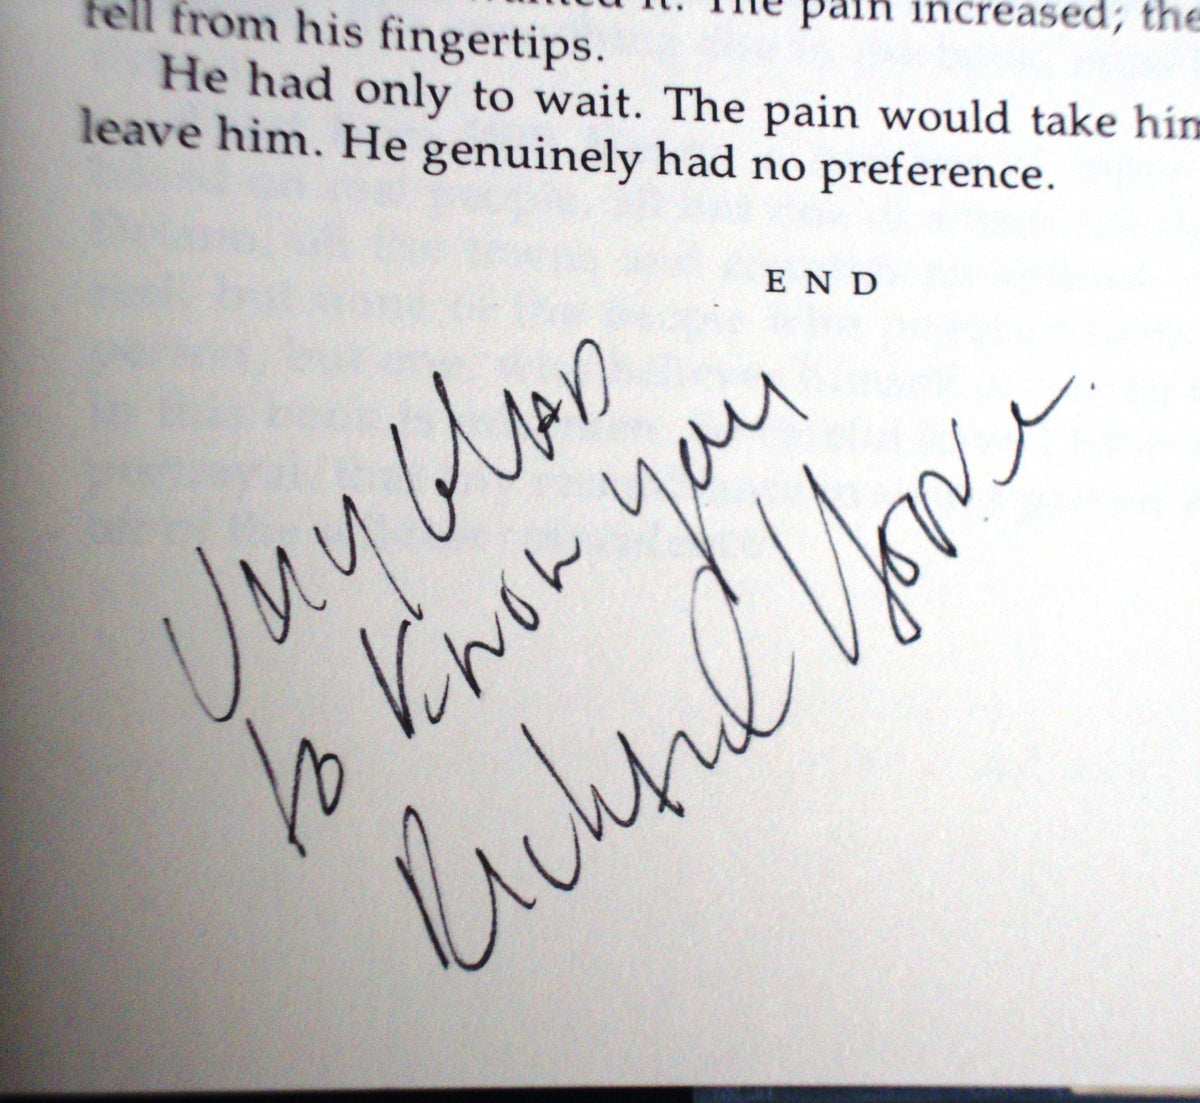 wanted it. The pain increased; the
fell from his fingertips.
He had only to wait. The pain would take him
leave him. He genuinely had no preference.
END
Very Glad
to Know you
Richard